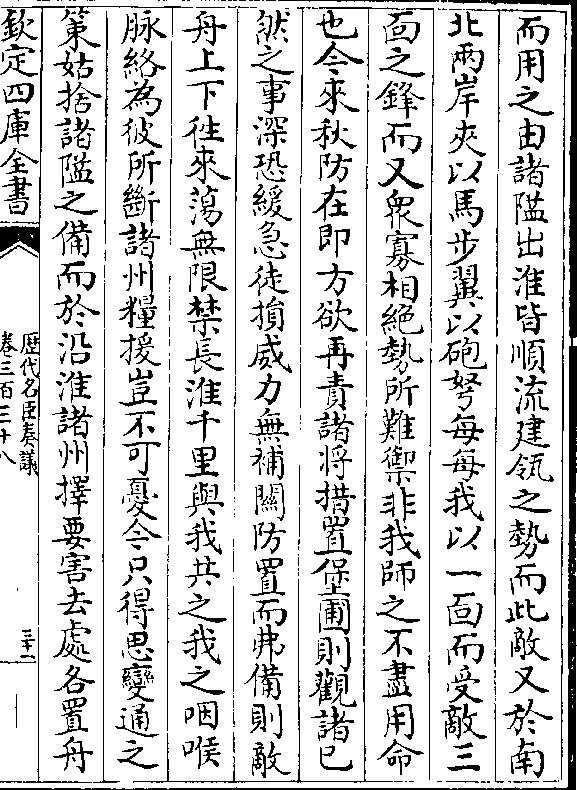 而用之由諸隘出淮皆順流建瓴之勢而此敵又於南
北兩岸夾以馬步翼以砲弩每每我以一面而受敵三
面之鋒而又衆寡相絕勢所難禦非我師之不盡用命
也今來秋防在即方欲再責諸將措置堡圃則觀諸已
然之事深恐緩急徒損威力無補關防置而弗備則敵
舟上下徃來蕩無限禁長淮千里與我共之我之咽喉
脉絡為彼所斷諸州糧援豈不可憂今只得思變通之
策姑捨諸隘之備而於沿淮諸州擇要害去處各置舟
欽定四庫全書
歴代名臣奏議
卷三百三十八
三十一